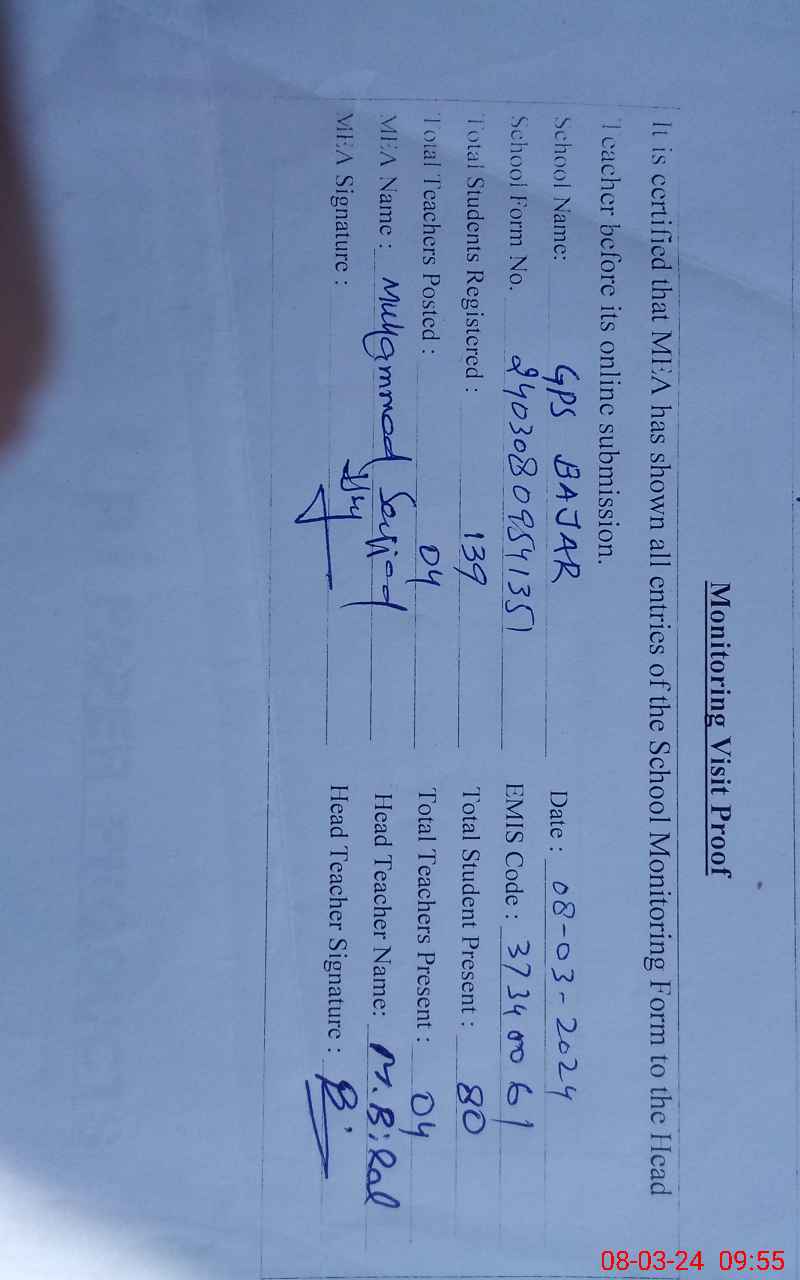 Monitoring Visit Proof
It is certified that MEA has shown all entries of the School Monitoring Form to the Head
Teacher before its online submission.
School Name: GPS BAJAR Date : 08-03-2024
School Form No. 24030809541351 EMIS Code : 37340061
Total Students Registered : 139 Total Student Present : 80
Total Teachers Posted : 04 Total Teachers Present : 04
MEA Name : Muhammad Head Teacher Name: M. Bilal
MEA Signature : Head Teacher Signature :
08-03-24 09:55